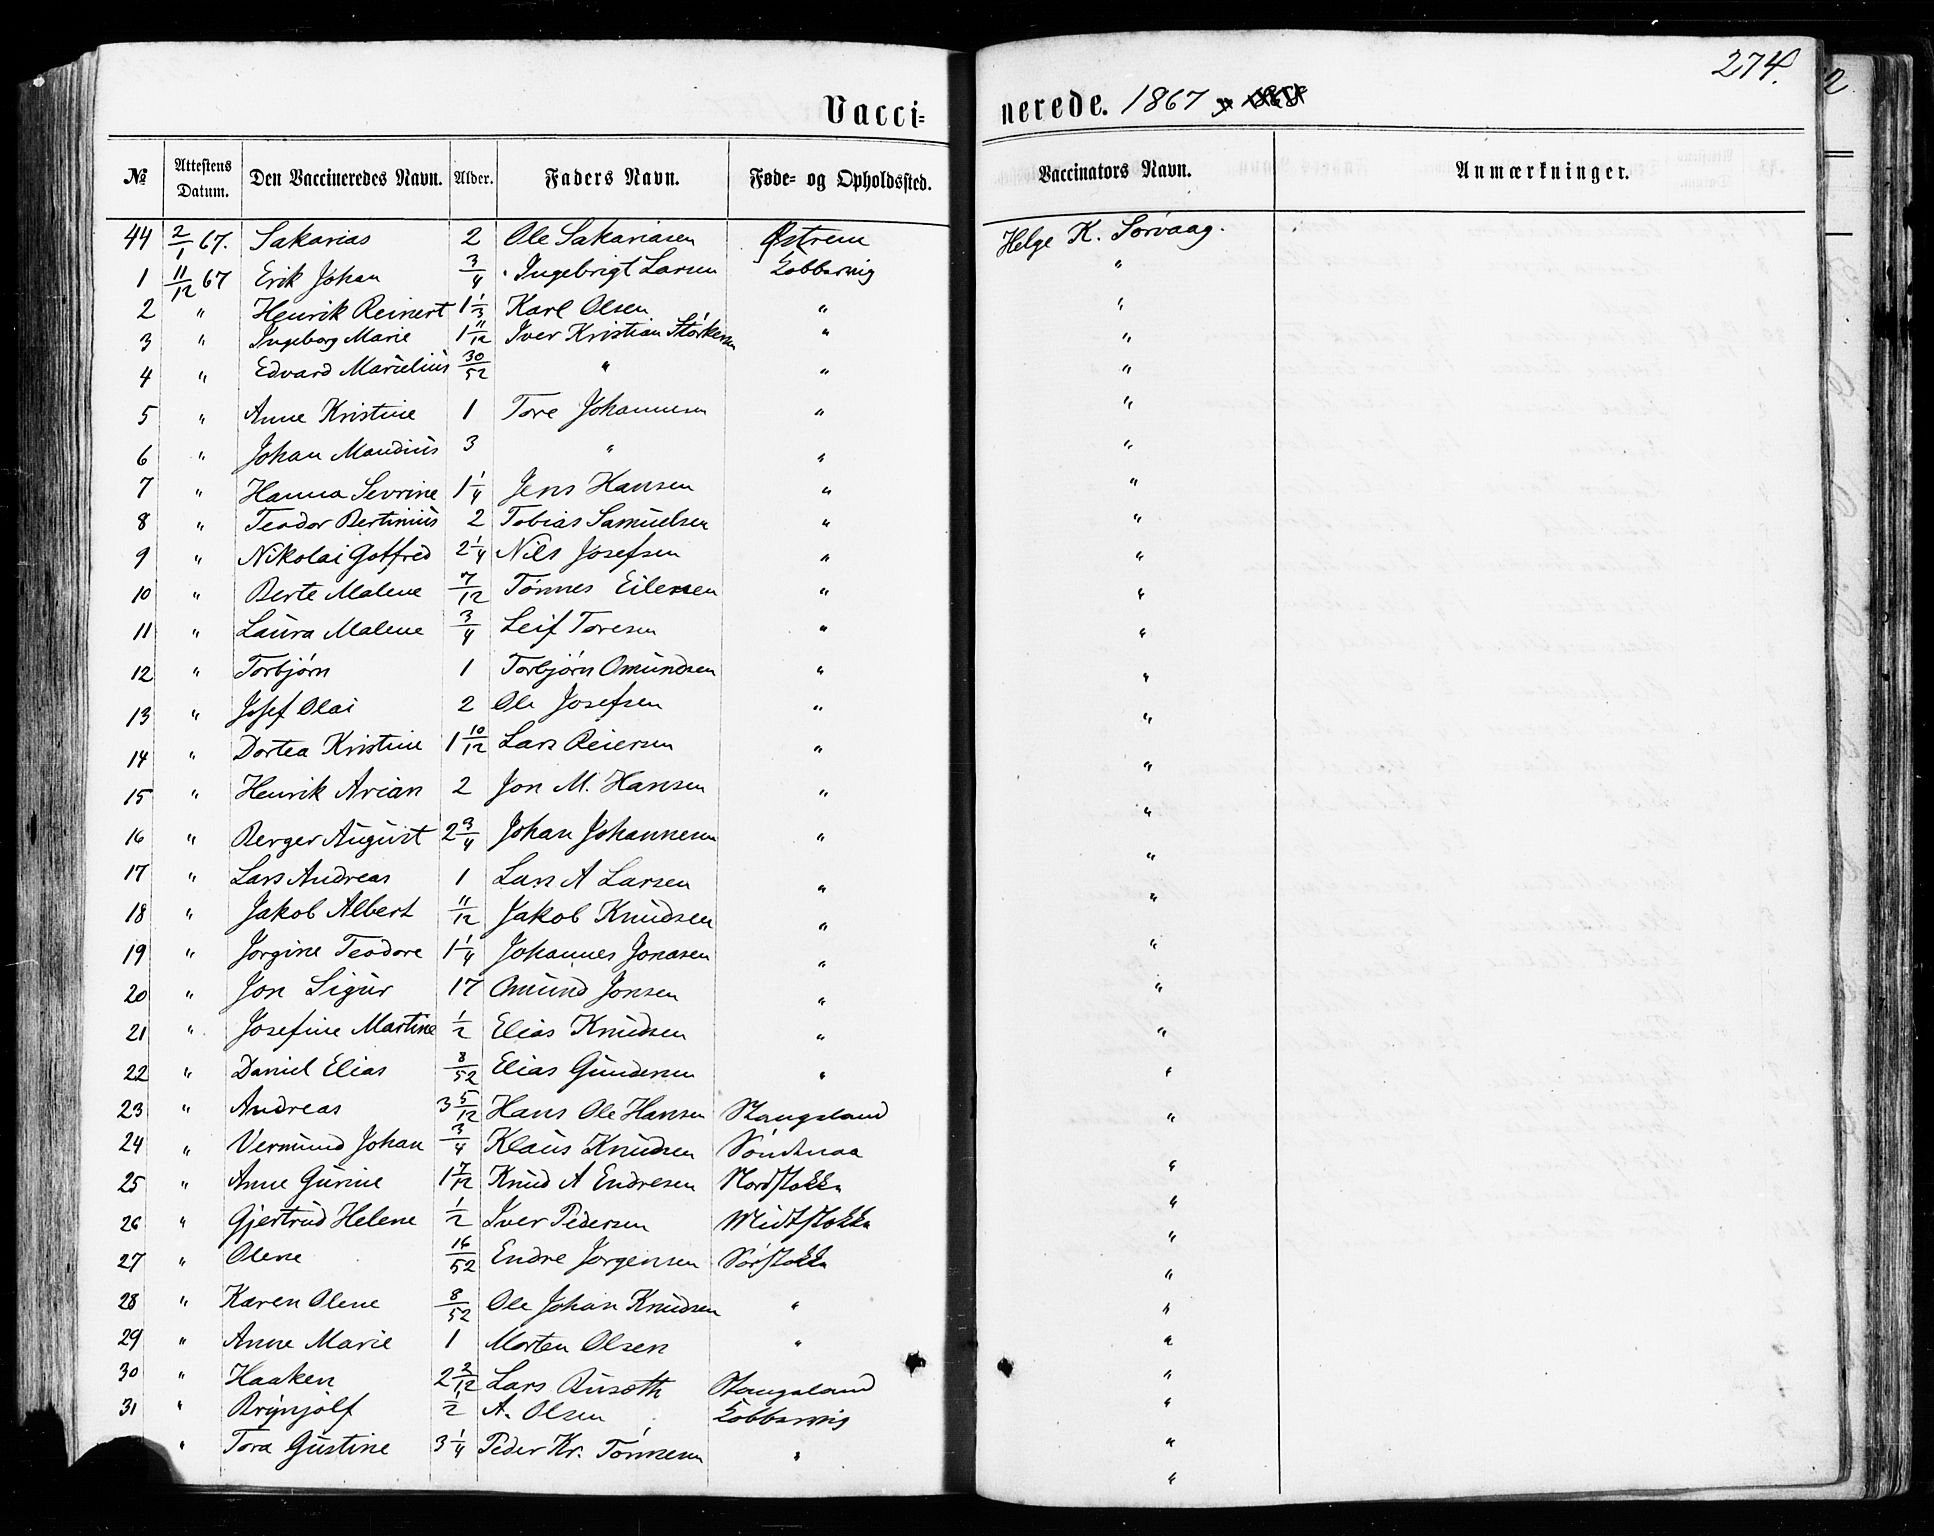 274.
2
Vacci- nerede. 1867
№ Attestens Datum. Den Vaccineredes Navn. Alder. Faders Navn. Føde- og Opholdssted. Vaccinators Navn. Anmærkninger.
44 2/1 67. Sakarias 2 Ole Sakariasen Østrem Helge K. Sørvaag.
1 11/12 67 Erik Johan 3/4 Ingebrigt Larsen Kobbervig "
2 " Henrik Reinert 1 1/3 Karl Olsen " "
3 " Ingeborg Marie 1 11/12 Iver Kristian Størkersen " "
4 " Edvard Marselius 30/52 " " "
5 " Anne Kristine 1 Tore Johannesen " "
6 " Johan Mandius 3 " " "
7 " Hanna Sevrine 1 1/4 Jens Hansen " "
8 " Teodor Bertinius 2 Tobias Samuelsen " "
9 " Nikolai Gotfred 2 1/4 Nils Josefsen " "
10 " Berte Malene 7/12 Tønnes Eilersen " "
11 " Laura Malene 3/4 Leif Toresen " "
12 " Torbjørn 1 Torbjørn Omundsen " "
13 " Josef Olai 2 Ole Josefsen " "
14 " Dortea Kristine 1 10/12 Lars Reiersen " "
15 " Henrik Arian 2 Jon M. Hansen " "
16 " Berger August 2 3/4 Johan Johannesen " "
17 " Lars Andreas 1 Lars A Larsen " "
18 " Jakob Albert 11/12 Jakob Knudsen " "
19 " Jorgine Teodore 1 1/4 Johannes Jonasen " "
20 " Jon Sigur 17 Omund Jonsen " "
21 " Josefine Martine 1/2 Elias Knudsen " "
22 " Daniel Elias 8/52 Elias Gundersen " "
23 " Andreas 3 5/12 Hans Ole Hansen Stangeland "
24 " Vermund Johan 3/4 Klaus Knudsen Søndenaa "
25 " Anne Gurine 1 7/12 Knud A Endresen Nordstokke "
26 " Gjertrud Helene 1/2 Iver Pedersen Midtstokke "
27 " Olene 16/52 Endre Jørgensen Sørstokke "
28 " Karen Olene 8/52 Ole Johan Knudsen " "
29 " Anne Marie 1 Morten Olsen " "
30 " Haaken 2 2/12 Lars Stangeland "
31 " Brynjolf 1/2 A. Olsen Kobbervig "
" Tora Gustine 3 1/4 Peder Kr. Tønnesen " "